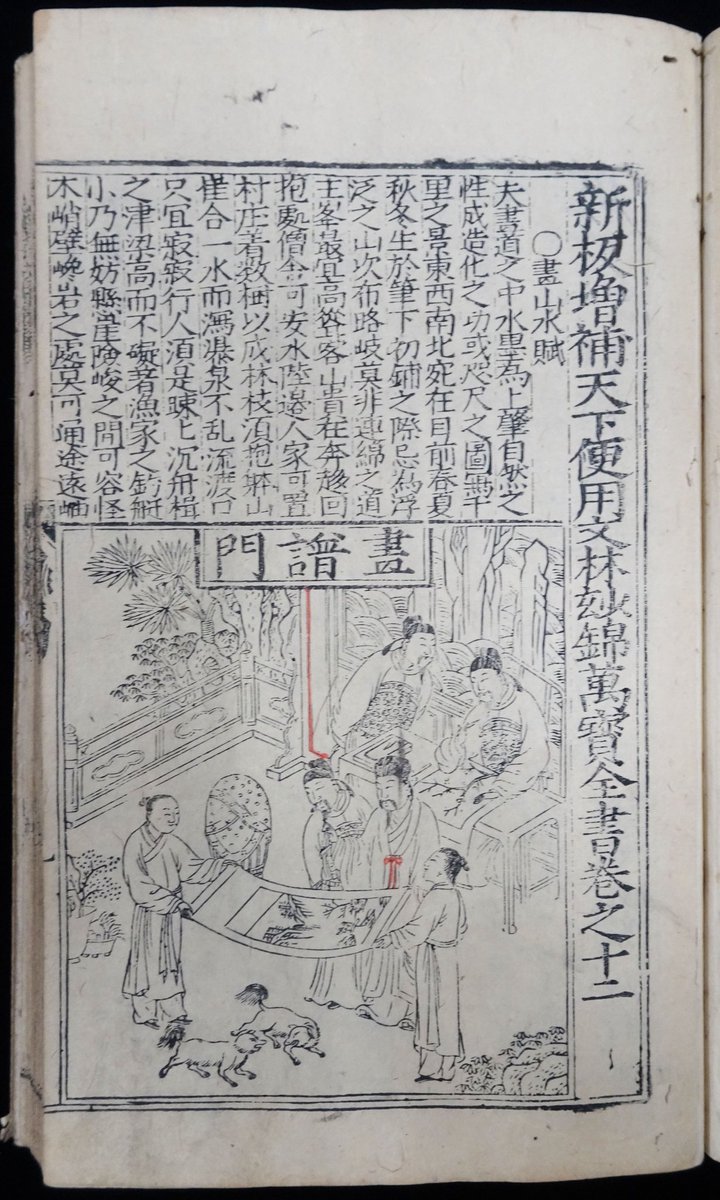 新板增補天下便用文林玅錦萬寶全書卷之十二
○畫山水賦
夫畫道之中水墨為上肇自然之
性成造化之功或咫尺之圖寫千
里之景東西南北宛在目前春夏
秋冬生於筆下初鋪之際忌為浮
泛之山次布路岐莫非連綿之道
主峯最宜高聳客山貴在奔趍回
抱處僧舍可安水陸邊人家可置
村庄著数樹以成林枝須抱躰山
崖合一水而瀉瀑泉不乱流渡口
只宜寂寂行人須是踈〻汎舟楫
之津梁高而不礙著漁家之釣艇
小乃無妨懸崖險峻之間可容怪
木峭壁巉岩之處莫可通途遠岫
畫譜門